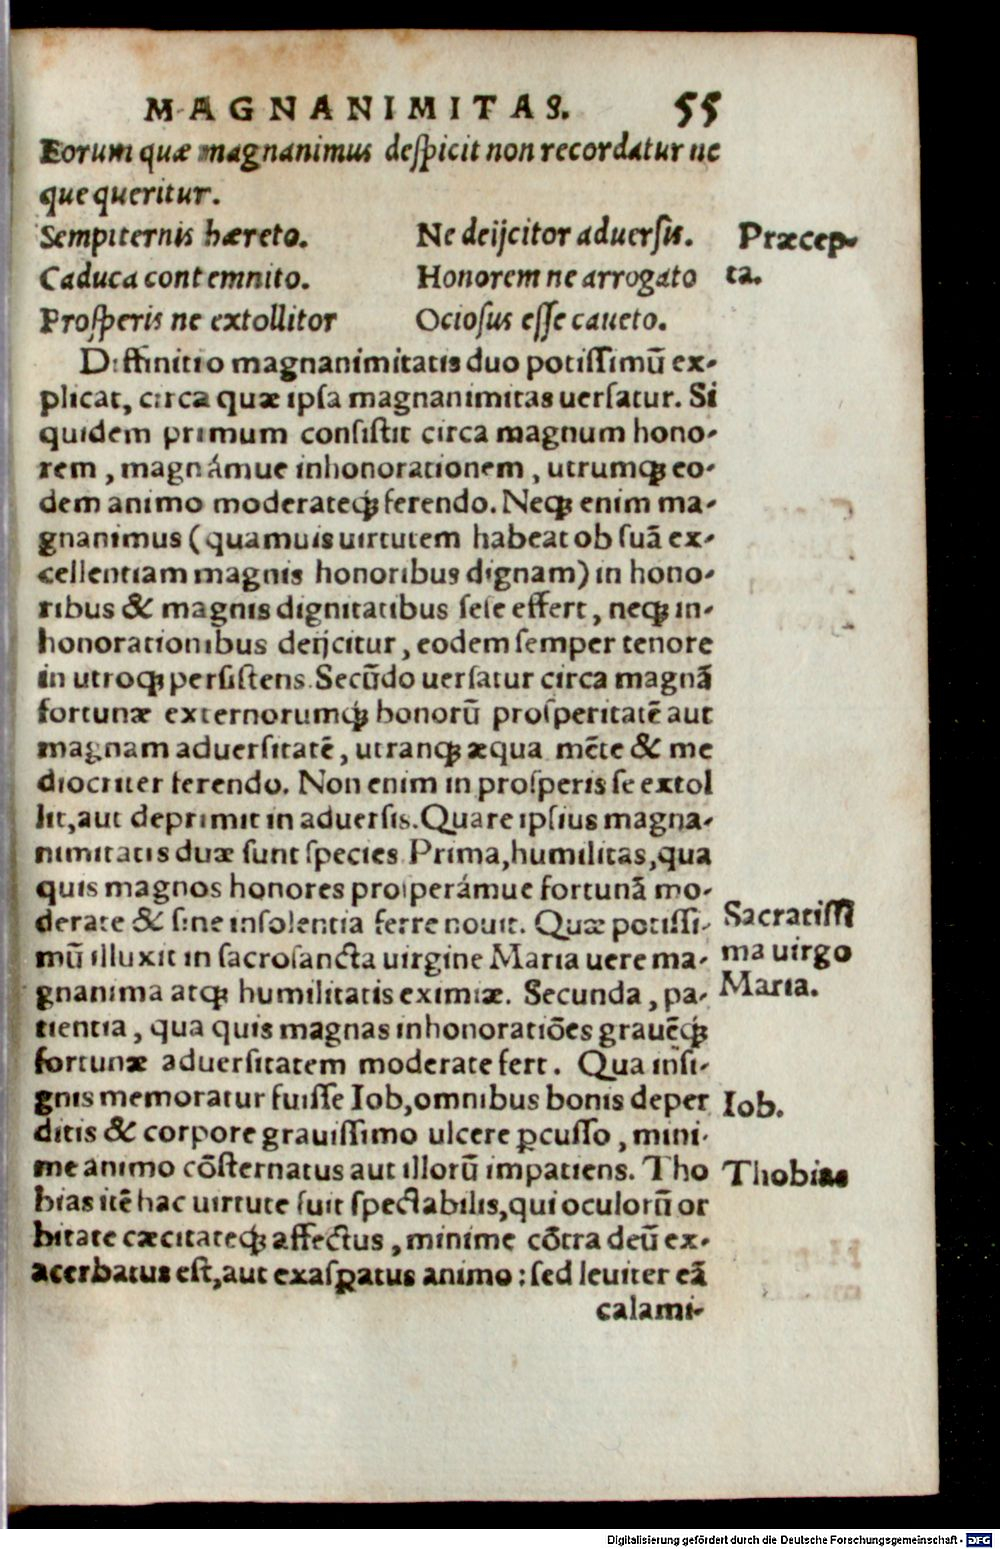 MAGNANIMITAS. 55
Eorum quæ magnanimus deſpicit non recordatur ne
que queritur.
Sempiternis hæreto. Ne deijcitor aduerſis. Præcep-
Caduca contemnito. Honorem ne arrogato ta.
Proſperis ne extollitor Ocioſus eſſe caueto.
Diffinitio magnanimitatis duo potiſſimũ ex-
plicat, circa quæ ipſa magnanimitas uerſatur. Si
quidem primum conſiſtit circa magnum hono-
rem, magnámue inhonorationem, utrumqꝫ eo-
dem animo moderateqꝫ ferendo. Neqꝫ enim ma-
gnanimus (quamuis uirtutem habeat ob ſuã ex-
cellentiam magnis honoribus dignam) in hono-
ribus & magnis dignitatibus ſeſe effert, neqꝫ in-
honorationibus deijcitur, eodem ſemper tenore
in utroqꝫ perſiſtens. Secũdo uerſatur circa magnã
fortunæ externorumqꝫ bonorũ proſperitatẽ aut
magnam aduerſitatẽ, utranqꝫ æqua mẽte & me
diocriter ferendo. Non enim in proſperis ſe extol
lit, aut deprimit in aduerſis. Quare ipſius magna-
nimitatis duæ ſunt ſpecies. Prima, humilitas, qua
quis magnos honores proſperámue fortunã mo-
derate & ſine inſolentia ferre nouit. Quæ potiſſi- Sacratiſſi
mũ illuxit in ſacroſancta uirgine Maria uere ma- ma uirgo
gnanima atqꝫ humilitatis eximiæ. Secunda, pa- Maria.
tientia, qua quis magnas inhonoratiões grauẽqꝫ
fortunæ aduerſitatem moderate fert. Qua inſi-
gnis memoratur fuiſſe Iob, omnibus bonis deper Iob.
ditis & corpore grauiſſimo ulcere ꝑcuſſo, mini-
me animo cõſternatus aut illorũ impatiens. Tho Thobias
bias itẽ hac uirtute fuit ſpectabilis, qui oculorũ or
bitate cæcitateqꝫ affectus, minime cõtra deũ ex-
acerbatus eſt, aut exaſꝑatus animo: ſed leuiter eã
calami-
Digitalisierung gefördert durch die Deutsche Forschungsgemeinschaft - DFG